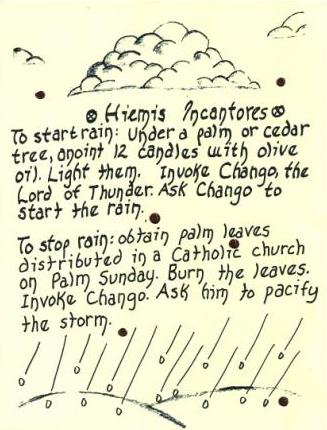 ⊗ Hiemis Incantores ⊗
To start rain: Under a palm or cedar
tree, anoint 12 candles with olive
oil. Light them. Invoke Chango, the
Lord of Thunder. Ask Chango to
start the rain.
To stop rain: obtain palm leaves
distributed in a Catholic church
on Palm Sunday. Burn the leaves.
Invoke Chango. Ask him to pacify
the storm.